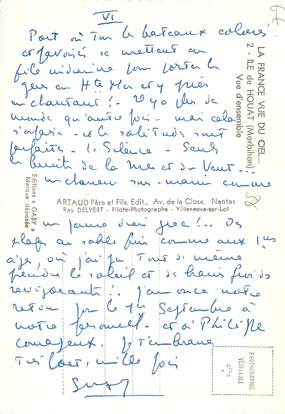 VI
Port où tous les bateaux colorés
et pavoisés se mettent en
file indienne pour porter le
gens en Hte Mer et y prier
en chantant! Il y a plus de
monde qu'autrefois mais cela
et la solitude sont
parfaites. Le Silence Seuls
le bruit de la Mer et du Vent.
un marin comme
un jeune dieu grec!... Des
plages au sable fin comme aux 1ers
âges, où j'ai pu tout de même
prendre le soleil et de bains froids
revigorants! J'annonce notre
retour pour le 1er Septembre à
notre personnel et à Philippe
courageux. Je t'embrasse
très fort, mille fois
Suzy
LA FRANCE VUE DU CIEL...
2 - ILE de HOUAT (Morbihan)
Vue d'ensemble
ARTAUD Père et Fils, Edit., Av. de la Close, Nantes
Ray DELVERT - Pilote-Photographe - Villeneuve-sur-Lot
Editions « GABY »
Marque déposée
PHOTOGRAPHIE
VÉRITABLE